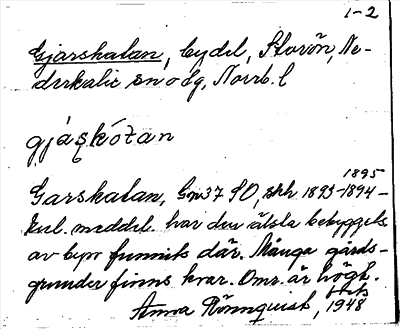 1-2
Gjarskatan, bydel, Storön, Ne-
derkalix sn o lg, Norrb. l
gjáskótan
1895
Garskatan, Gm 37 SO, skh 1893-1894-
Enl. meddel. har den älsta bebyggels
av byn funnits där. Många gårds-
grunder finns kvar. Omr. är högt.
Anna Rönnquist, 1948